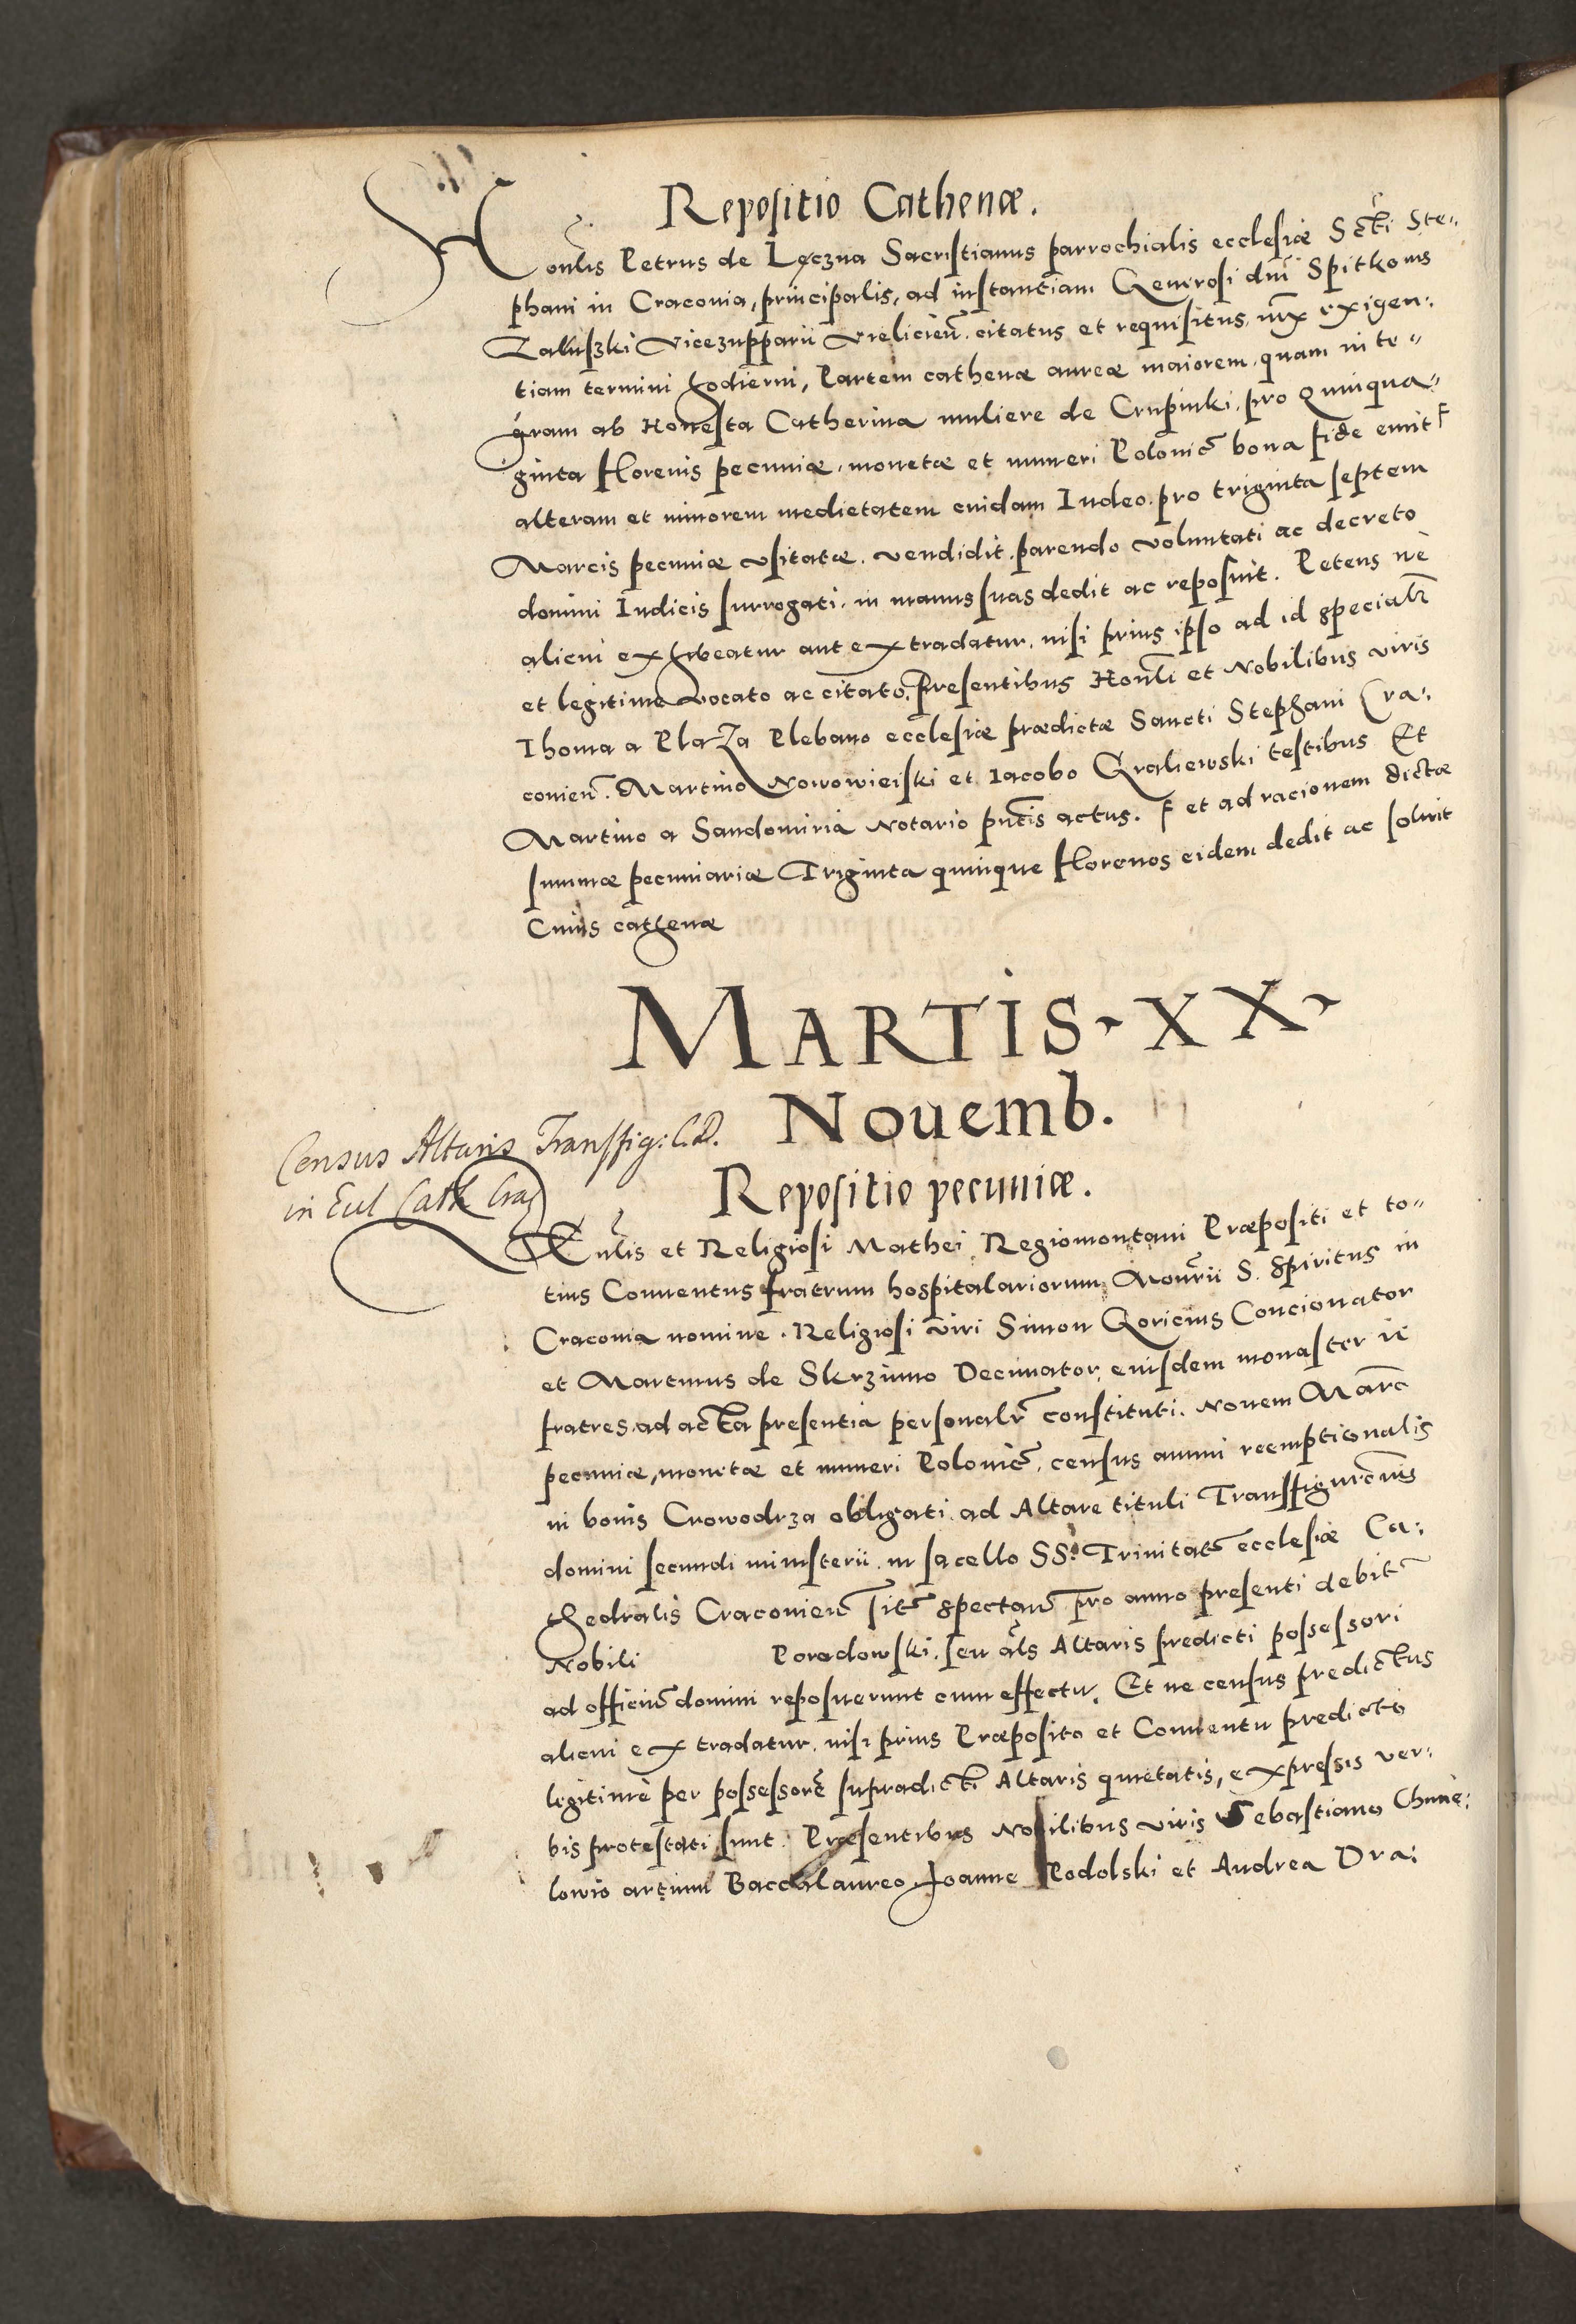 Repositio Cathenæ.
Honlis Petrus de Lęczna Sacristianus parrochialis ecclesiæ Scti Ste-
phani in Craconia, principalis, ad instantiam Generosi dni Spitkonis
Zaluszki Vicezupparii Vieliciens. citatus et requisitus, iux exigen-
tiam termini hodierni, Partem cathenæ aureæ maiorem, quam inte-
gram ab Honesta Catherina muliere de Crupinki, pro Quinqua-
ginta florenis pecuniæ, monetæ et numeri Polonic bona fide emit F
alteram et minorem medietatem cuidam Iudeo pro triginta septem
Marcis pecuniæ usitatæ. vendidit, parendo voluntati ac decreto
domini Iudicis surrogati, in manus suas dedit ac reposuit. Petens nè
alicui exhibeatur aut extradatur, nisi prius ipso ad id specialr
et legitime vocato ac citato. Presentibus Honli et Nobilibus viris
Thoma a Plaza Plebano ecclesiæ prædictæ Sancti Stephani Cra-
coniens. Martino Nowowieiski et Iacobo Graliewski testibus Et
Martino a Sandomiria Notario pntis actus. F et ad racionem dictæ
summæ pecuniariæ Triginta quinque florenos eidem dedit ac soluit
Cuius cathenæ
MARTIS - XX -
Nouemb.
Census Altaris Transfig: C.D.
in Eccl Cath Crac
Repositio pecuniæ.
Vnlis et Religiosi Mathei Regiomontani Præpositi et to-
tius Conuentus fratrum hospitalariorum Monrii S. Spiritus in
Craconia nomine. Religiosi viri Simon Goricius Concionator
et Martinus de Skrzinno Decimator, eiusdem monasterii
fratres, ad acta presentia personalr constituti. Nouem Marc
pecuniæ, monetæ et numeri Polonic, census annui reemptionalis
in bonis Crowodrza obligati, ad Altare tituli Transfigurcnis
domini secundi ministerii in sacello SS. Trinitat ecclesiæ Ca-
thedralis Craconien sit spectan pro anno presenti debit
Nobili Poradowski, seu als Altaris predicti possessori
ad officium domini reposuerunt cum effectu. Et ne census predictus
alicui extradatur, nisi prius Præposito et Conuentu predicto
legitimè per possessore supradicti Altaris quietatis, expressis ver-
bis protestati sunt. Præsentibus Nobilibus viris Sebastiano Chmie-
lowio artium Baccalaureo, Ioanne Podolski et Andrea Dra-